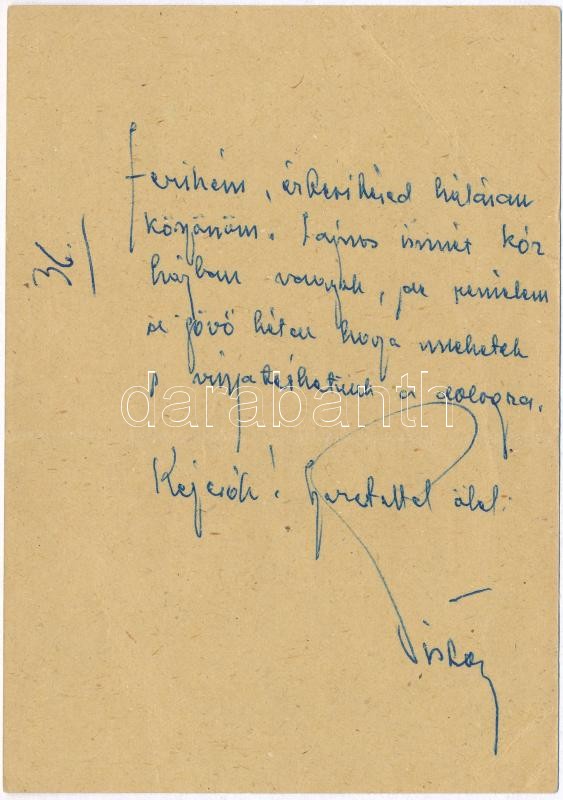 Ferikém, értesítésed hálásan
köszönöm. Sajnos ismét kór
házban vagyok, de remélem
a jövő héten haza mehetek
s visszatérhetünk a dologra.
Kezcsók! Szeretettel ölel:
Pista
36.
darabanth